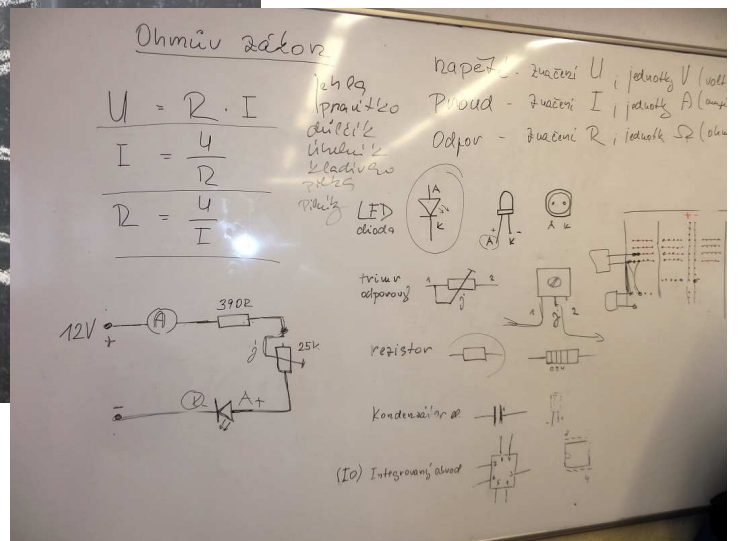 Ohmův zákon
U = R · I
I = U
R
R = U
I
jehla
pravítko
důlčík
úhelník
kladívko
pilka
pilník
napětí - značení U, jednotky V (volt
Proud - značení I, jednotky A (
Odpor - značení R, jednotk Ω (ohm
LED
dioda
A
K
+
A
K
-
A K
+ -
trimr
odporový
1
2
j
1
j
2
rezistor
Kondenzátor
(IO) Integrovaný obvod
12V
+
A
390R
j
25k
-
K
A+